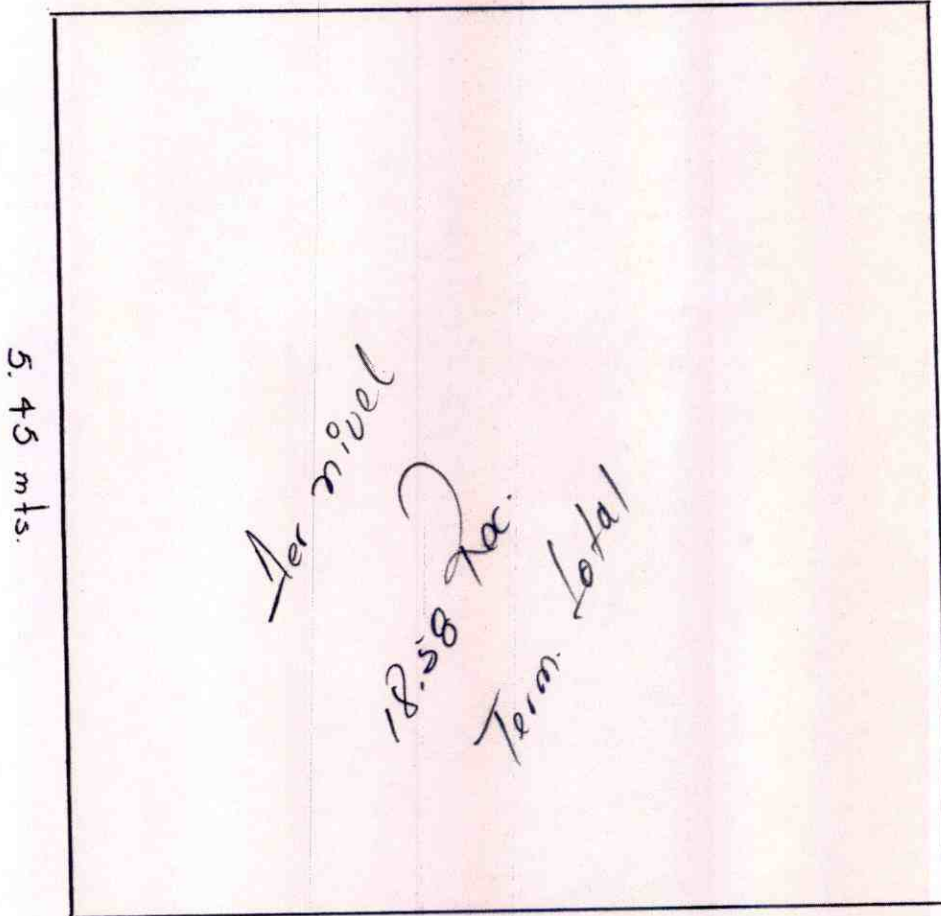 5.45 mts.
1er nivel
18.58
Term. total